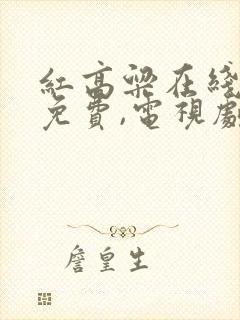 紅高梁在綫
免費,電視劇
詹皇生